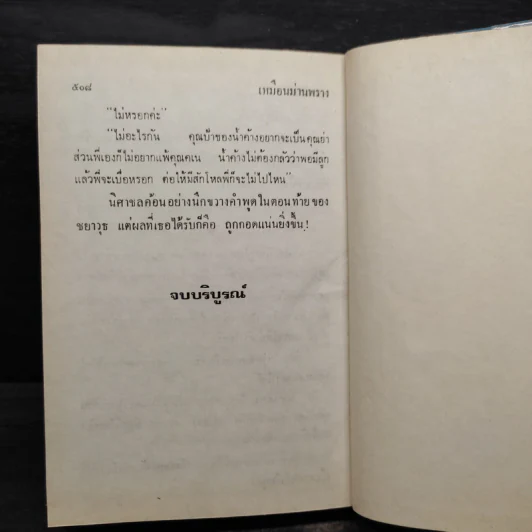 ๕๐๘ เหมือนม่านพราง
"ไม่หรอกค่ะ"
"ไม่อะไรกัน คุณป้าของน้ำค้างอยากจะเป็นคุณย่า
ส่วนพี่เองก็ไม่อยากแพ้คุณคเน น้ำค้างไม่ต้องกลัวว่าพอมีลูก
แล้วพี่จะเบื่อหรอก ต่อให้มีสักโหลพี่ก็จะไม่ไปไหน"
นิศาชลค้อนอย่างนึกขวางคำพูดในตอนท้ายของ
ชยาวุธ แต่ผลที่เธอได้รับก็คือ ถูกกอดแน่นยิ่งขึ้น!
จบบริบูรณ์